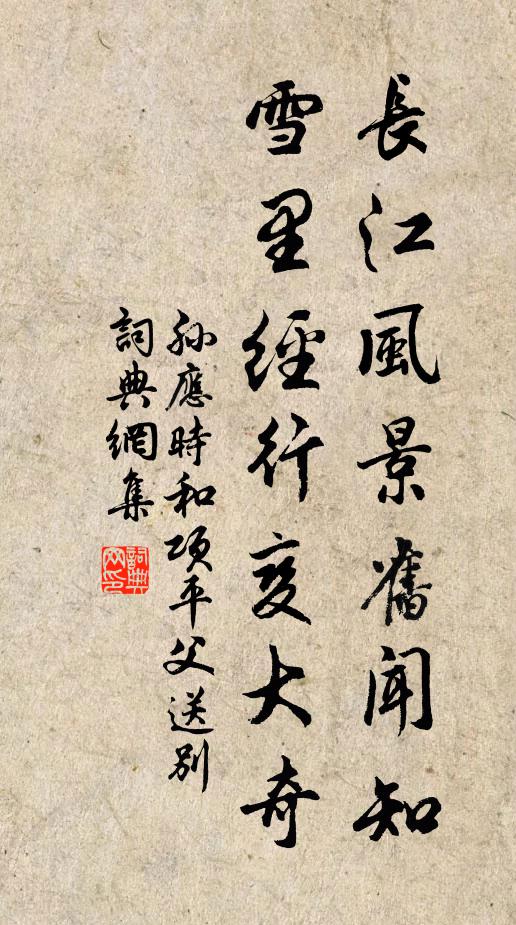 長江風景舊聞知
雪里經行更大奇
孫應時和項平父送別
詞典網集
詞典網印